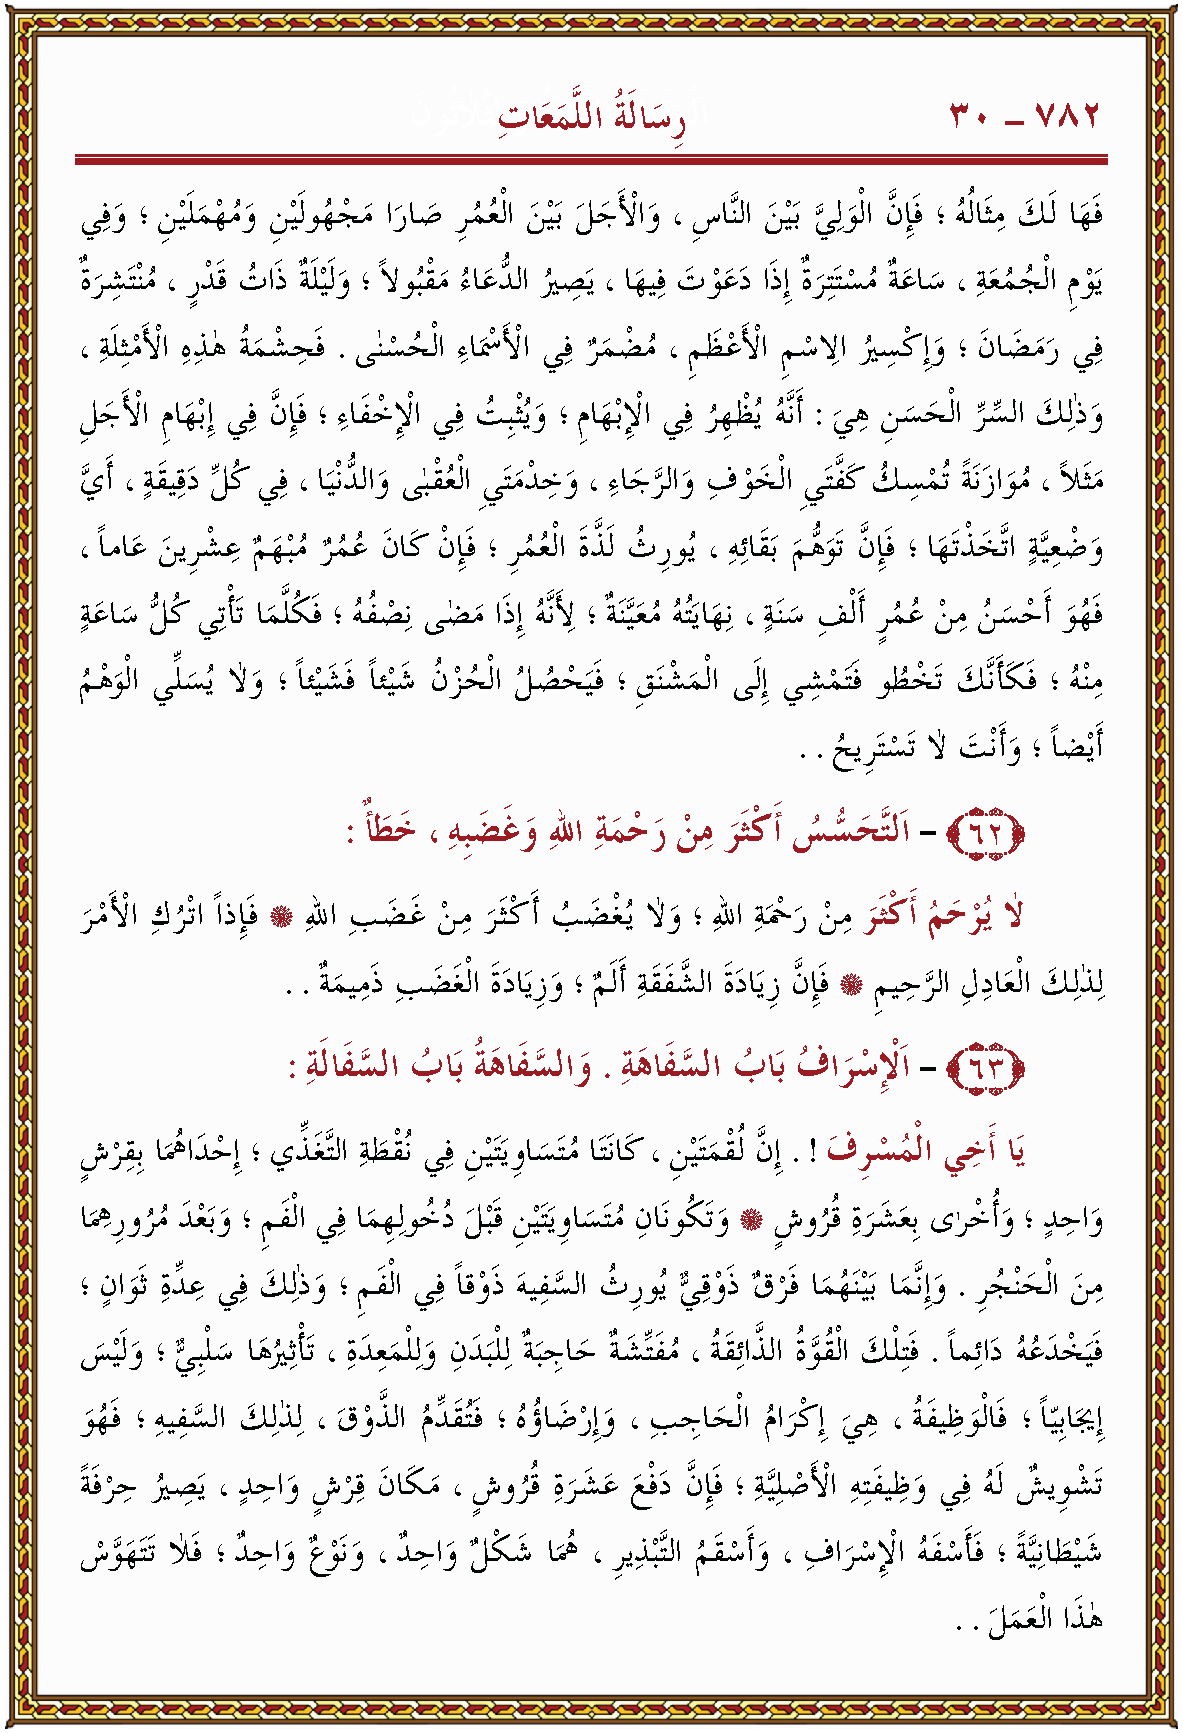 ٧٨٢ – ٣٠ رِسَالَةُ اللَّمَعَاتِ
فَهَا لَكَ مِثَالُهُ ؛ فَإِنَّ الْوَلِيَّ بَيْنَ النَّاسِ ، وَالْأَجَلَ بَيْنَ الْعُمُرِ صَارَا مَجْهُولَيْنِ وَمُهْمَلَيْنِ ؛ وَفِي
يَوْمِ الْجُمُعَةِ ، سَاعَةٌ مُسْتَتِرَةٌ إِذَا دَعَوْتَ فِيهَا ، يَصِيرُ الدُّعَاءُ مَقْبُولاً ؛ وَلَيْلَةٌ ذَاتُ قَدْرٍ ، مُنْتَشِرَةٌ
فِي رَمَضَانَ ؛ وَإِكْسِيرُ الاِسْمِ الْأَعْظَمِ ، مُضْمَرٌ فِي الْأَسْمَاءِ الْحُسْنٰى . فَحِشْمَةُ هٰذِهِ الْأَمْثِلَةِ ،
وَذٰلِكَ السِّرَّ الْحَسَنِ هِيَ : أَنَّهُ يُظْهِرُ فِي الْإِبْهَامِ ؛ وَيُثْبِتُ فِي الْإِخْفَاءِ ؛ فَإِنَّ فِي إِبْهَامِ الْأَجَلِ
مَثَلاً ، مُوَازَنَةً تُمْسِكُ كَفَّتَيِ الْخَوْفِ وَالرَّجَاءِ ، وَخِدْمَتَيِ الْعُقْبٰى وَالدُّنْيَا ، فِي كُلِّ دَقِيقَةٍ ، أَيَّ
وَضْعِيَّةٍ اتَّخَذْتَهَا ؛ فَإِنَّ تَوَهُّمَ بَقَائِهِ ، يُورِثُ لَذَّةَ الْعُمُرِ ؛ فَإِنْ كَانَ عُمُرٌ مُبْهَمٌ عِشْرِينَ عَاماً ،
فَهُوَ أَحْسَنُ مِنْ عُمُرٍ أَلْفِ سَنَةٍ ، نِهَايَتُهُ مُعَيَّنَةٌ ؛ لِأَنَّهُ إِذَا مَضٰى نِصْفُهُ ؛ فَكُلَّمَا تَأْتِي كُلُّ سَاعَةٍ
مِنْهُ ؛ فَكَأَنَّكَ تَخْطُو فَتَمْشِي إِلَى الْمَشْنَقِ ؛ فَيَحْصُلُ الْحُزْنُ شَيْئاً فَشَيْئاً ؛ وَلاٰ يُسَلِّي الْوَهْمُ
أَيْضاً ؛ وَأَنْتَ لاٰ تَسْتَرِيحُ . .
﴿٦٢﴾ – اَلتَّحَسُّسُ أَكْثَرَ مِنْ رَحْمَةِ اللهِ وَغَضَبِهِ ، خَطَأٌ :
لاٰ يُرْحَمُ أَكْثَرَ مِنْ رَحْمَةِ اللهِ ؛ وَلاٰ يُغْضَبُ أَكْثَرَ مِنْ غَضَبِ اللهِ ۞ فَإِذاً اتْرُكِ الْأَمْرَ
لِذٰلِكَ الْعَادِلِ الرَّحِيمِ ۞ فَإِنَّ زِيَادَةَ الشَّفَقَةِ أَلَمٌ ؛ وَزِيَادَةَ الْغَضَبِ ذَمِيمَةٌ . .
﴿٦٣﴾ – اَلْإِسْرَافُ بَابُ السَّفَاهَةِ . وَالسَّفَاهَةُ بَابُ السَّفَالَةِ :
يَا أَخِي الْمُسْرِفَ ! . إِنَّ لُقْمَتَيْنِ ، كَانَتَا مُتَسَاوِيَتَيْنِ فِي نُقْطَةِ التَّغَذِّي ؛ إِحْدَاهُمَا بِقِرْشٍ
وَاحِدٍ ؛ وَأُخْرٰى بِعَشَرَةِ قُرُوشٍ ۞ وَتَكُونَانِ مُتَسَاوِيَتَيْنِ قَبْلَ دُخُولِهِمَا فِي الْفَمِ ؛ وَبَعْدَ مُرُورِهِمَا
مِنَ الْحَنْجُرِ . وَإِنَّمَا بَيْنَهُمَا فَرْقٌ ذَوْقِيٌّ يُورِثُ السَّفِيهَ ذَوْقاً فِي الْفَمِ ؛ وَذٰلِكَ فِي عِدَّةِ ثَوَانٍ ؛
فَيَخْدَعُهُ دَائِماً . فَتِلْكَ الْقُوَّةُ الذَّائِقَةُ ، مُفَتِّشَةٌ حَاجِبَةٌ لِلْبَدَنِ وَلِلْمَعِدَةِ ، تَأْثِيرُهَا سَلْبِيٌّ ؛ وَلَيْسَ
إِيجَابِيّاً ؛ فَالْوَظِيفَةُ ، هِيَ إِكْرَامُ الْحَاجِبِ ، وَإِرْضَاؤُهُ ؛ فَتُقَدِّمُ الذَّوْقَ ، لِذٰلِكَ السَّفِيهِ ؛ فَهُوَ
تَشْوِيشٌ لَهُ فِي وَظِيفَتِهِ الْأَصْلِيَّةِ ؛ فَإِنَّ دَفْعَ عَشَرَةِ قُرُوشٍ ، مَكَانَ قِرْشٍ وَاحِدٍ ، يَصِيرُ حِرْفَةً
شَيْطَانِيَّةً ؛ فَأَسْفَهُ الْإِسْرَافِ ، وَأَسْقَمُ التَّبْذِيرِ ، هُمَا شَكْلٌ وَاحِدٌ ، وَنَوْعٌ وَاحِدٌ ؛ فَلاٰ تَتَهَوَّسْ
هٰذَا الْعَمَلَ . .